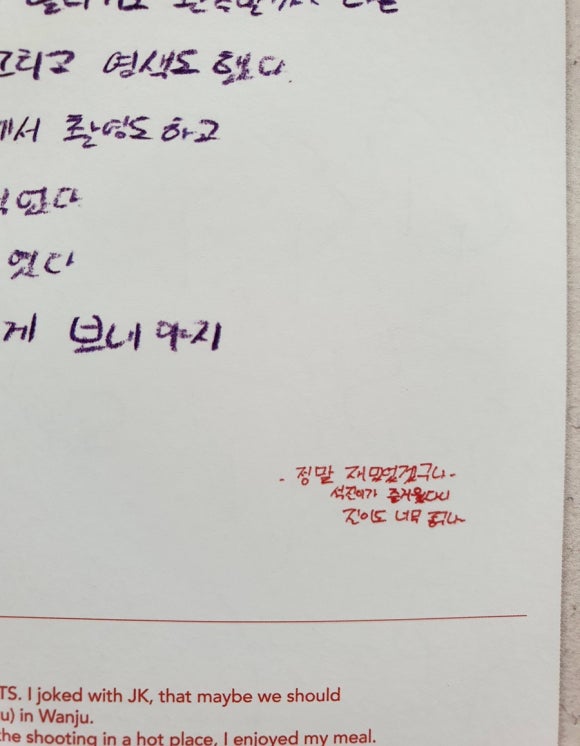 그리고 염색도 했다.
에서 촬영도 하고
었다
였다
게 보내야지
- 정말 재밌었겠구나-
석진이가 즐거웠다니
진이도 너무
TS. I joked with JK, that maybe we should
u) in Wanju.
the shooting in a hot place, I enjoyed my meal.